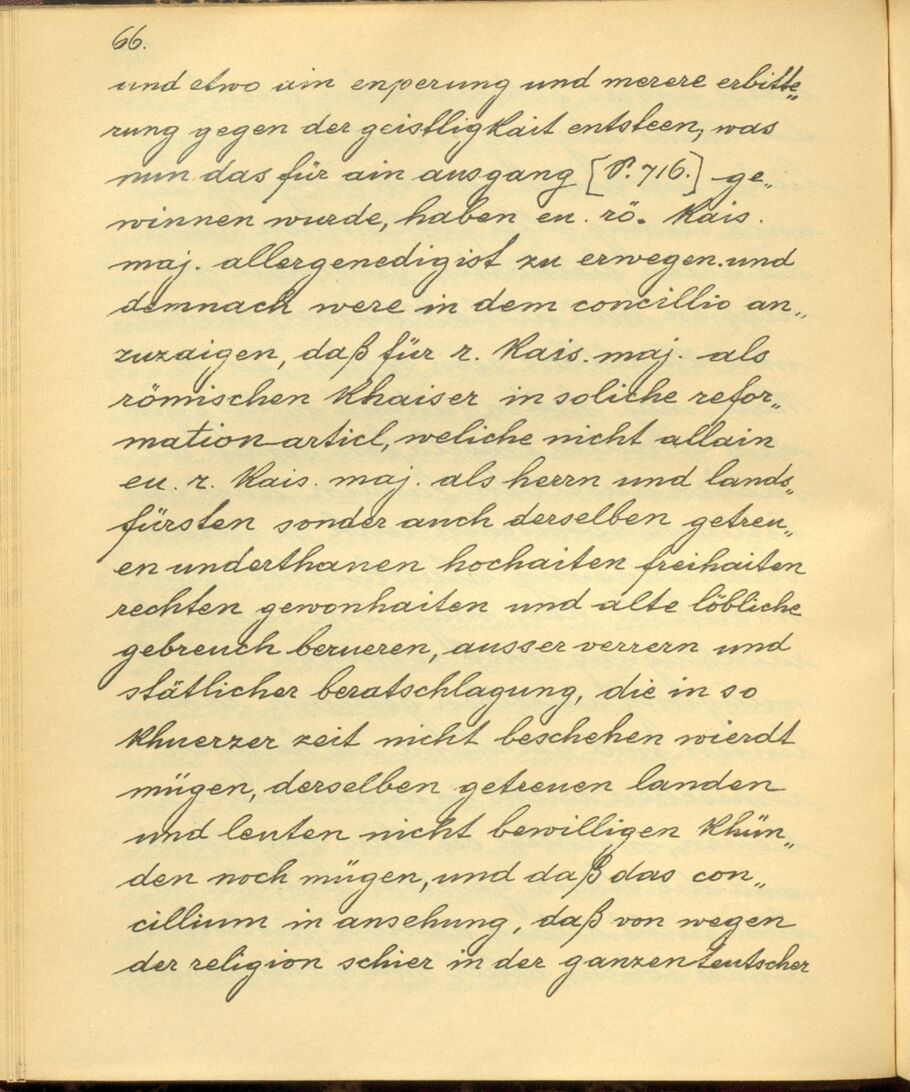 66.
und etwo ain enperung und merere erbitte„
rung gegen der geistligkait entsteen, was
nun das für ain ausgang [P. 716.] ge„
winnen wurde, haben eu. rö. kais.
maj. allergenedigist zu erwegen. und
demnach were in dem concillio an„
zuzaigen, daß für r. kais. maj. als
römischen khaiser in soliche refor„
mation articl, weliche nicht allain
eu. r. kais. maj. als herrn und lands„
fürsten sonder auch derselben getreu„
en underthanen hochaiten freihaiten
rechten gewonhaiten und alte löbliche
gebreuch berueren, ausser verrern und
stätlicher beratschlagung, die in so
khuerzer zeit nicht beschehen wierdt
mügen, derselben getreuen landen
und leuten nicht bewilligen khün„
den noch mügen, und daß das con„
cillium in ansehung, daß von wegen
der religion schier in der ganzen teutscher